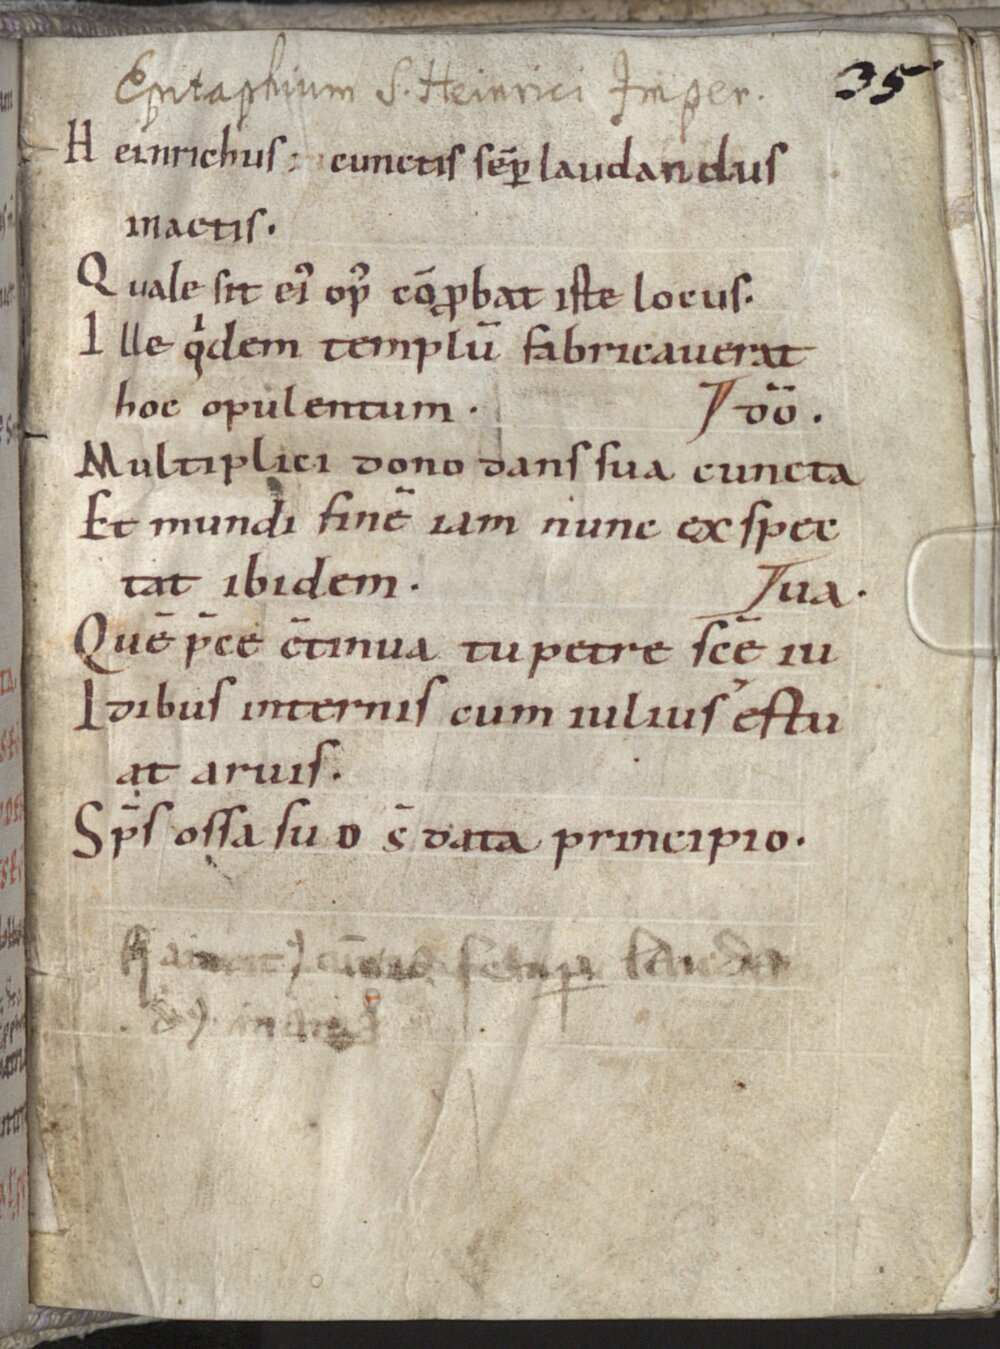 Epitaphium S. Heinrici Imper.
35
Heinrichus; cunctis sēp laudandus
inactis.
Quale sit ei᾿ op᾿ cōpbat iste locus.
Ille qͥdem templū fabricauerat
hoc opulentum. dō̄.
Multiplici dono dans sua cuncta
Et mundi finē iam nunc exspec
tat ibidem. ua.
Quē p̄ce c̄tinua tu petre sc̄e iu
Idibus internis cum iulius ęstu
at aruis.
Sp̄s ossa suo s̄ data principio.
semp lauda